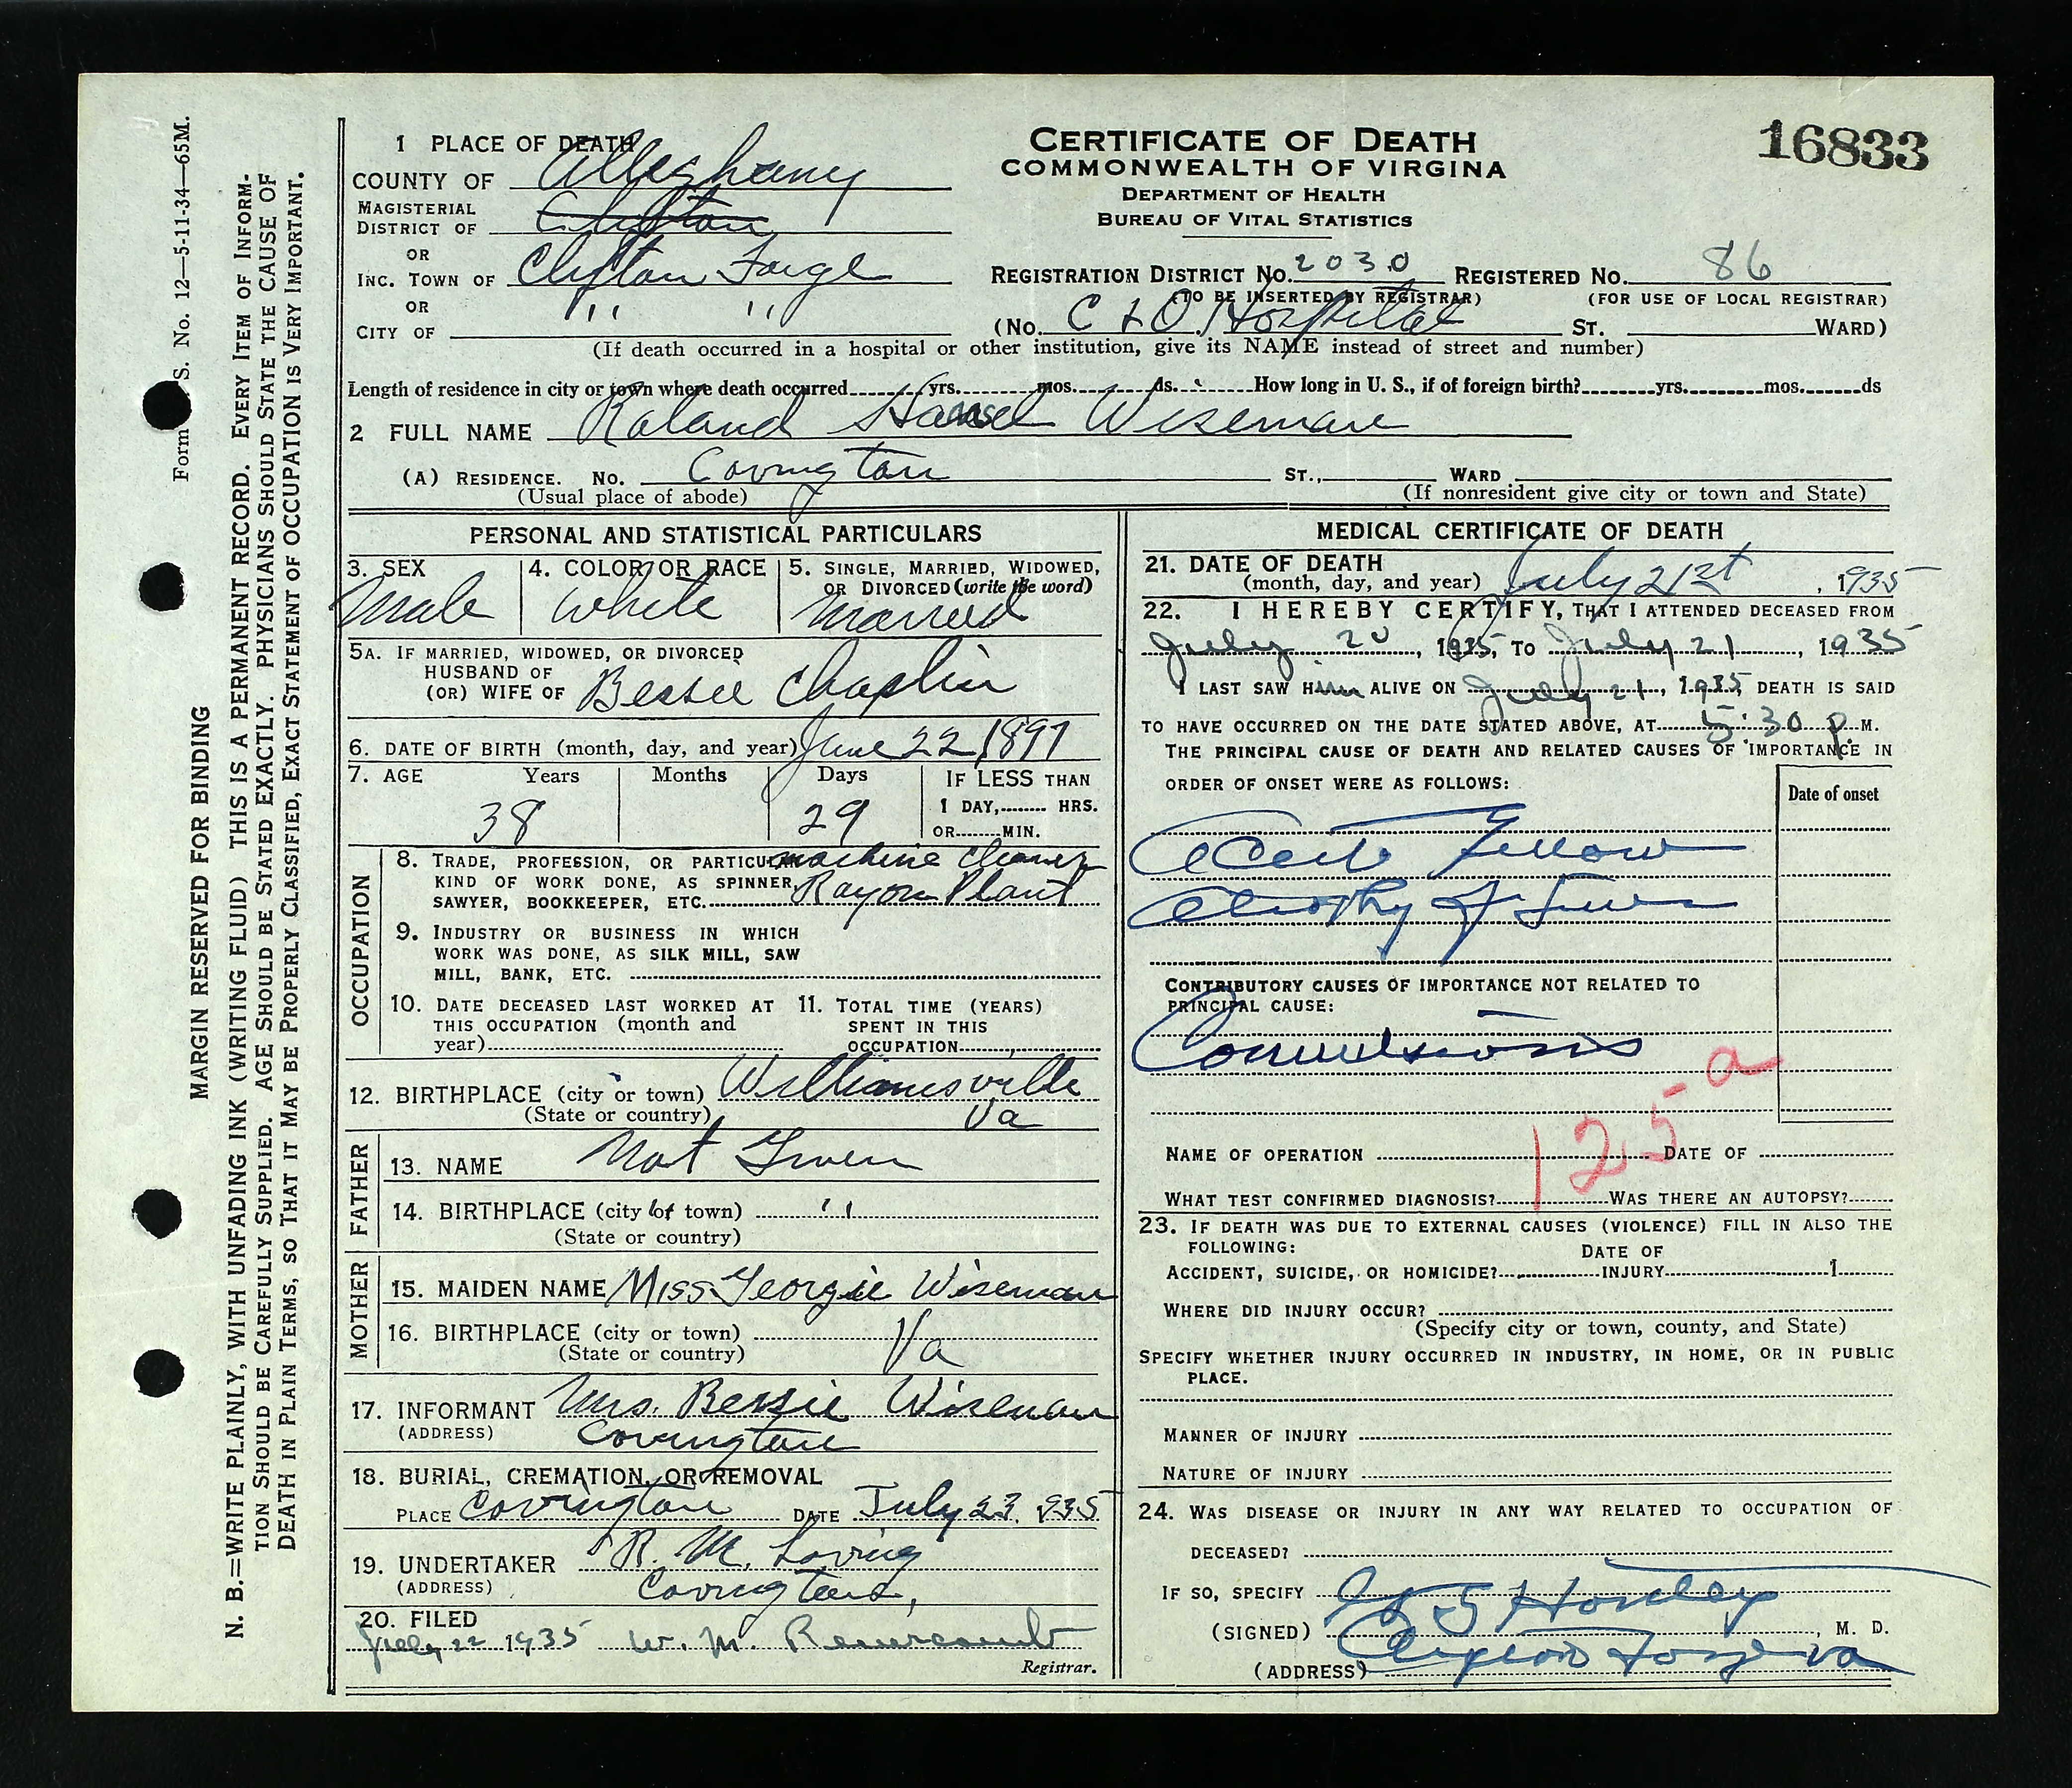 16833
CERTIFICATE OF DEATH
COMMONWEALTH OF VIRGINA
DEPARTMENT OF HEALTH
BUREAU OF VITAL STATISTICS
1 PLACE OF DEATH
COUNTY OF Alleghany
MAGISTERIAL DISTRICT OF Clifton
OR
INC. TOWN OF Clifton Forge
OR
CITY OF " "
REGISTRATION DISTRICT NO. 2030 REGISTERED NO. 86
(TO BE INSERTED BY REGISTRAR) (FOR USE OF LOCAL REGISTRAR)
(NO. C & O Hospital ST. WARD)
(If death occurred in a hospital or other institution, give its NAME instead of street and number)
Length of residence in city or town where death occurred yrs. mos. ds. How long in U. S., if of foreign birth? yrs. mos. ds
2 FULL NAME Roland Wiseman
(A) RESIDENCE. NO. Covington ST., WARD
(Usual place of abode) (If nonresident give city or town and State)
PERSONAL AND STATISTICAL PARTICULARS
3. SEX Male
4. COLOR OR RACE White
5. SINGLE, MARRIED, WIDOWED, OR DIVORCED (write the word) Married
5A. IF MARRIED, WIDOWED, OR DIVORCED
HUSBAND OF
(OR) WIFE OF Bessie Chaplin
6. DATE OF BIRTH (month, day, and year) June 22, 1897
7. AGE Years Months Days IF LESS THAN
38 29 1 DAY, HRS.
OR MIN.
OCCUPATION
8. TRADE, PROFESSION, OR PARTICULAR machine cleaner
KIND OF WORK DONE, AS SPINNER, Rayon Plant
SAWYER, BOOKKEEPER, ETC.
9. INDUSTRY OR BUSINESS IN WHICH
WORK WAS DONE, AS SILK MILL, SAW
MILL, BANK, ETC.
10. DATE DECEASED LAST WORKED AT THIS OCCUPATION (month and year)
11. TOTAL TIME (YEARS) SPENT IN THIS OCCUPATION
12. BIRTHPLACE (city or town) Williamsville
(State or country) Va
FATHER
13. NAME Not Given
14. BIRTHPLACE (city or town) "
(State or country)
MOTHER
15. MAIDEN NAME Miss Georgie Wiseman
16. BIRTHPLACE (city or town)
(State or country) Va
17. INFORMANT Mrs. Bessie Wiseman
(ADDRESS) Covington
18. BURIAL, CREMATION, OR REMOVAL
PLACE Covington DATE July 23, 1935
19. UNDERTAKER R. M. Loving
(ADDRESS) Covington,
20. FILED
July 22 1935 W. M.
Registrar.
MEDICAL CERTIFICATE OF DEATH
21. DATE OF DEATH
(month, day, and year) July 21st, 1935
22. I HEREBY CERTIFY, THAT I ATTENDED DECEASED FROM
July 20, 1935, TO July 21, 1935
I LAST SAW Him ALIVE ON July 21, 1935, DEATH IS SAID
TO HAVE OCCURRED ON THE DATE STATED ABOVE, AT 5:30 p. M.
THE PRINCIPAL CAUSE OF DEATH AND RELATED CAUSES OF IMPORTANCE IN
ORDER OF ONSET WERE AS FOLLOWS:
Date of onset
Acute Yellow
Atrophy of Liver
CONTRIBUTORY CAUSES OF IMPORTANCE NOT RELATED TO
PRINCIPAL CAUSE:
Convulsions
125 a
NAME OF OPERATION DATE OF
WHAT TEST CONFIRMED DIAGNOSIS? WAS THERE AN AUTOPSY?
23. IF DEATH WAS DUE TO EXTERNAL CAUSES (VIOLENCE) FILL IN ALSO THE
FOLLOWING:
ACCIDENT, SUICIDE, OR HOMICIDE? DATE OF INJURY 1
WHERE DID INJURY OCCUR?
(Specify city or town, county, and State)
SPECIFY WHETHER INJURY OCCURRED IN INDUSTRY, IN HOME, OR IN PUBLIC
PLACE.
MANNER OF INJURY
NATURE OF INJURY
24. WAS DISEASE OR INJURY IN ANY WAY RELATED TO OCCUPATION OF
DECEASED?
IF SO, SPECIFY
(SIGNED) , M. D.
(ADDRESS) Clifton Forge Va
Form S. No. 12—5-11-34—65M.
MARGIN RESERVED FOR BINDING
N. B.=WRITE PLAINLY, WITH UNFADING INK (WRITING FLUID) THIS IS A PERMANENT RECORD. EVERY ITEM OF INFORM-
TION SHOULD BE CAREFULLY SUPPLIED. AGE SHOULD BE STATED EXACTLY. PHYSICIANS SHOULD STATE THE CAUSE OF
DEATH IN PLAIN TERMS, SO THAT IT MAY BE PROPERLY CLASSIFIED, EXACT STATEMENT OF OCCUPATION IS VERY IMPORTANT.